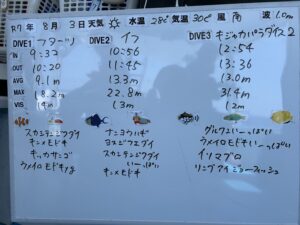 R7年 8月 3日 天気 ☼ 水温 28℃ 気温 30℃ 風 南 波 1.0m
DIVE1 フターツ
DIVE2 イフ
DIVE3 キジカパラダイス2
IN 9:32 10:56 12:54
OUT 10:20 11:45 13:36
AVG 9.1m 13.3m 13.0m
MAX 18.2m 22.8m 31.4m
VIS 14m 13m 12m
スカシテンジクダイ
キンメモドキ
キッカサンゴ
ウメイロモドキyg
ナンヨウハギ
ヨスジフエダイ
スカシテンジクダイ
いーっぱい
キンメモドキ
グルクンいーっぱい
ウメイロモドキいーっぱい
イソマグロ